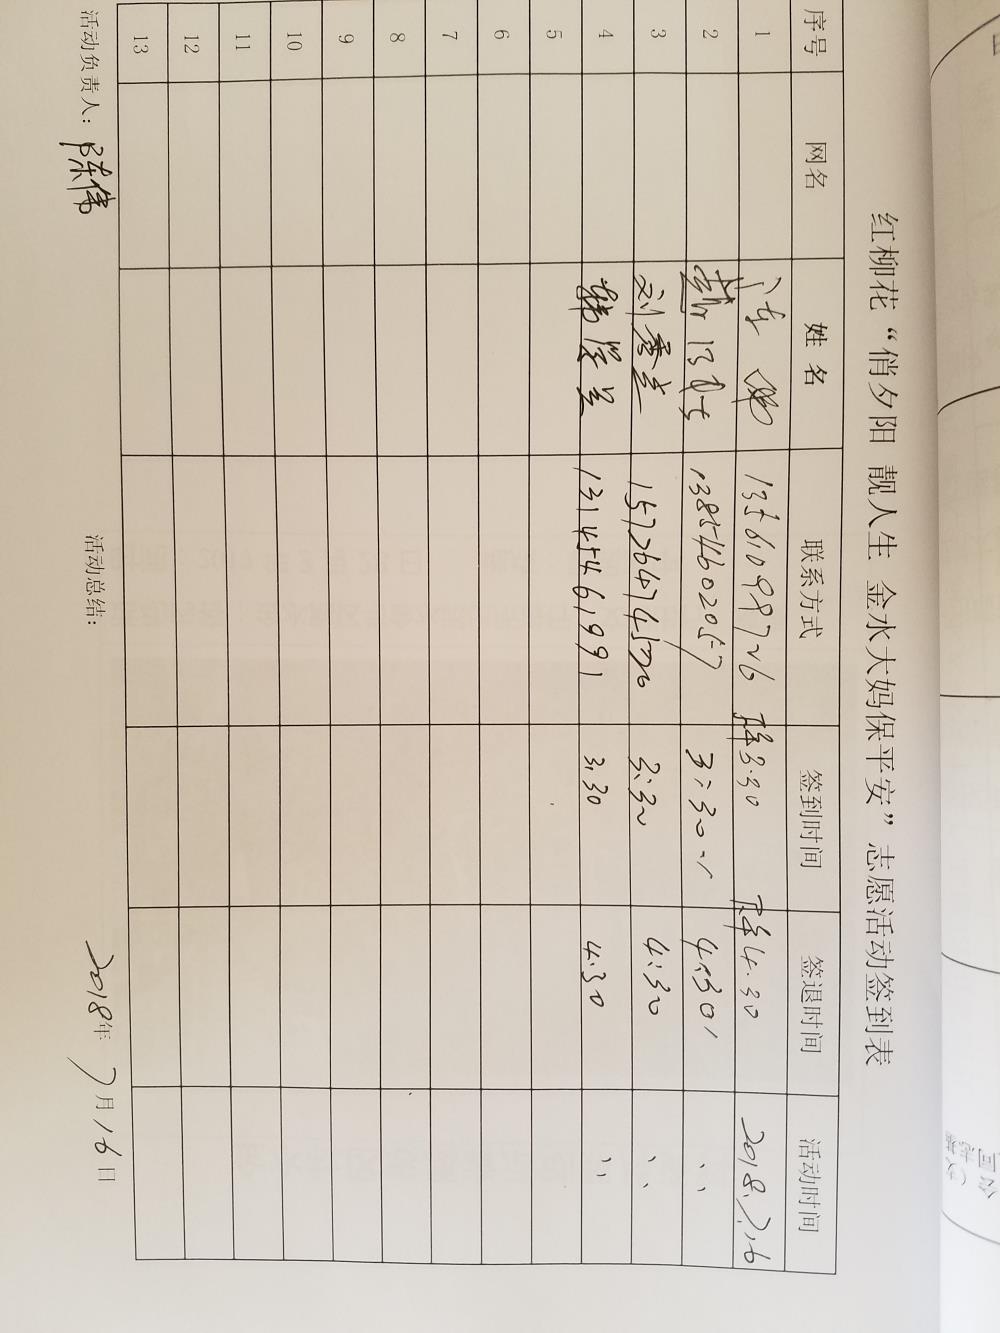 红柳花“俏夕阳 靓人生 金水大妈保平安”志愿活动签到表
序号 网名 姓名 联系方式 签到时间 签退时间 活动时间
1 13561098726 下午3:30 下午4:30 2018.7.16
2 13854602057 3:30 4:30 〃
3 刘秀兰 15726474570 3:30 4:30 〃
4 13145461991 3:30 4:30 〃
5
6
7
8
9
10
11
12
13
活动负责人：陈伟 活动总结： 2018年7月16日